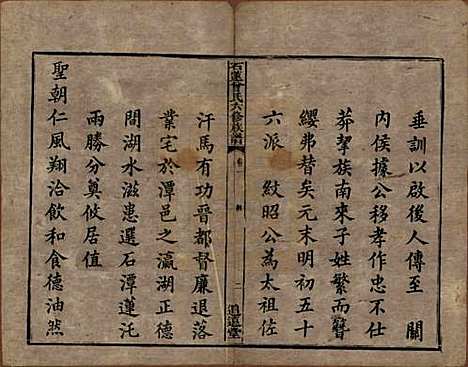 垂訓以啟後人傳至　關
內侯據公移孝作忠不仕
莽挈族南來子姓繁而簪
纓弗替矣元末明初五十
六派　紋昭公為太祖佐
石蓮曾氏六修族譜
卷
二
追遠堂
汗馬有功晉都督廉退落
業宅於潭邑之瀛湖正德
間湖水滋患選石潭蓮託
兩勝分奠攸居值
聖朝仁風翔洽飲和食德油然